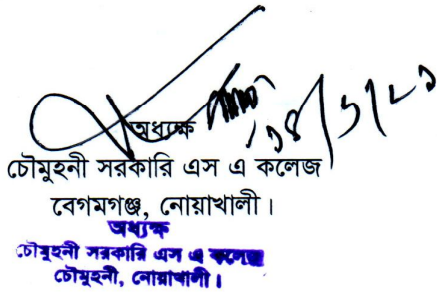 অধ্যক্ষ
চৌমুহনী সরকারি এস এ কলেজ
বেগমগঞ্জ, নোয়াখালী।
অধ্যক্ষ
চৌমুহনী সরকারি এস এ কলেজ
চৌমুহনী, নোয়াখালী।